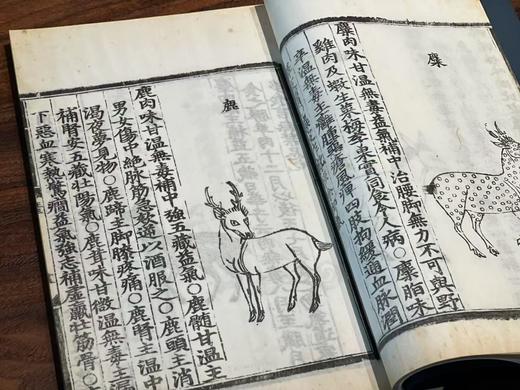 麋
麋肉味甘溫無毒益氣補中治腰脚無力不可與野
雞肉及蝦生菜梅李果實同食令人病〇麋脂味
辛溫無毒主癰腫惡瘡風痺四肢拘緩通血脉潤
鹿
鹿肉味甘溫無毒補中強五藏益氣〇鹿髓甘溫主
男女傷中絶脉筋急欬逆以酒服之〇鹿頭主消
渴夜夢見物〇鹿蹄主脚膝疼痛〇鹿腎主溫中
補腎安五藏壯陽氣〇鹿茸味甘微溫無毒主
下惡血寒熱驚癇益氣強志補虛羸壯筋骨〇